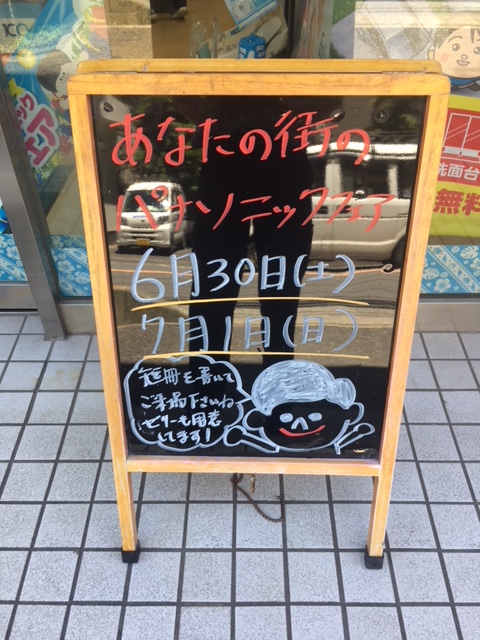 あなたの街の
パナソニックフェア
6月30日(土)
7月1日(日)
短冊を書いて
ご来場下さいね
ゼリーも用意
してます!
洗面台
無料